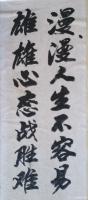 漫漫人生不容易
雄雄心态战胜难